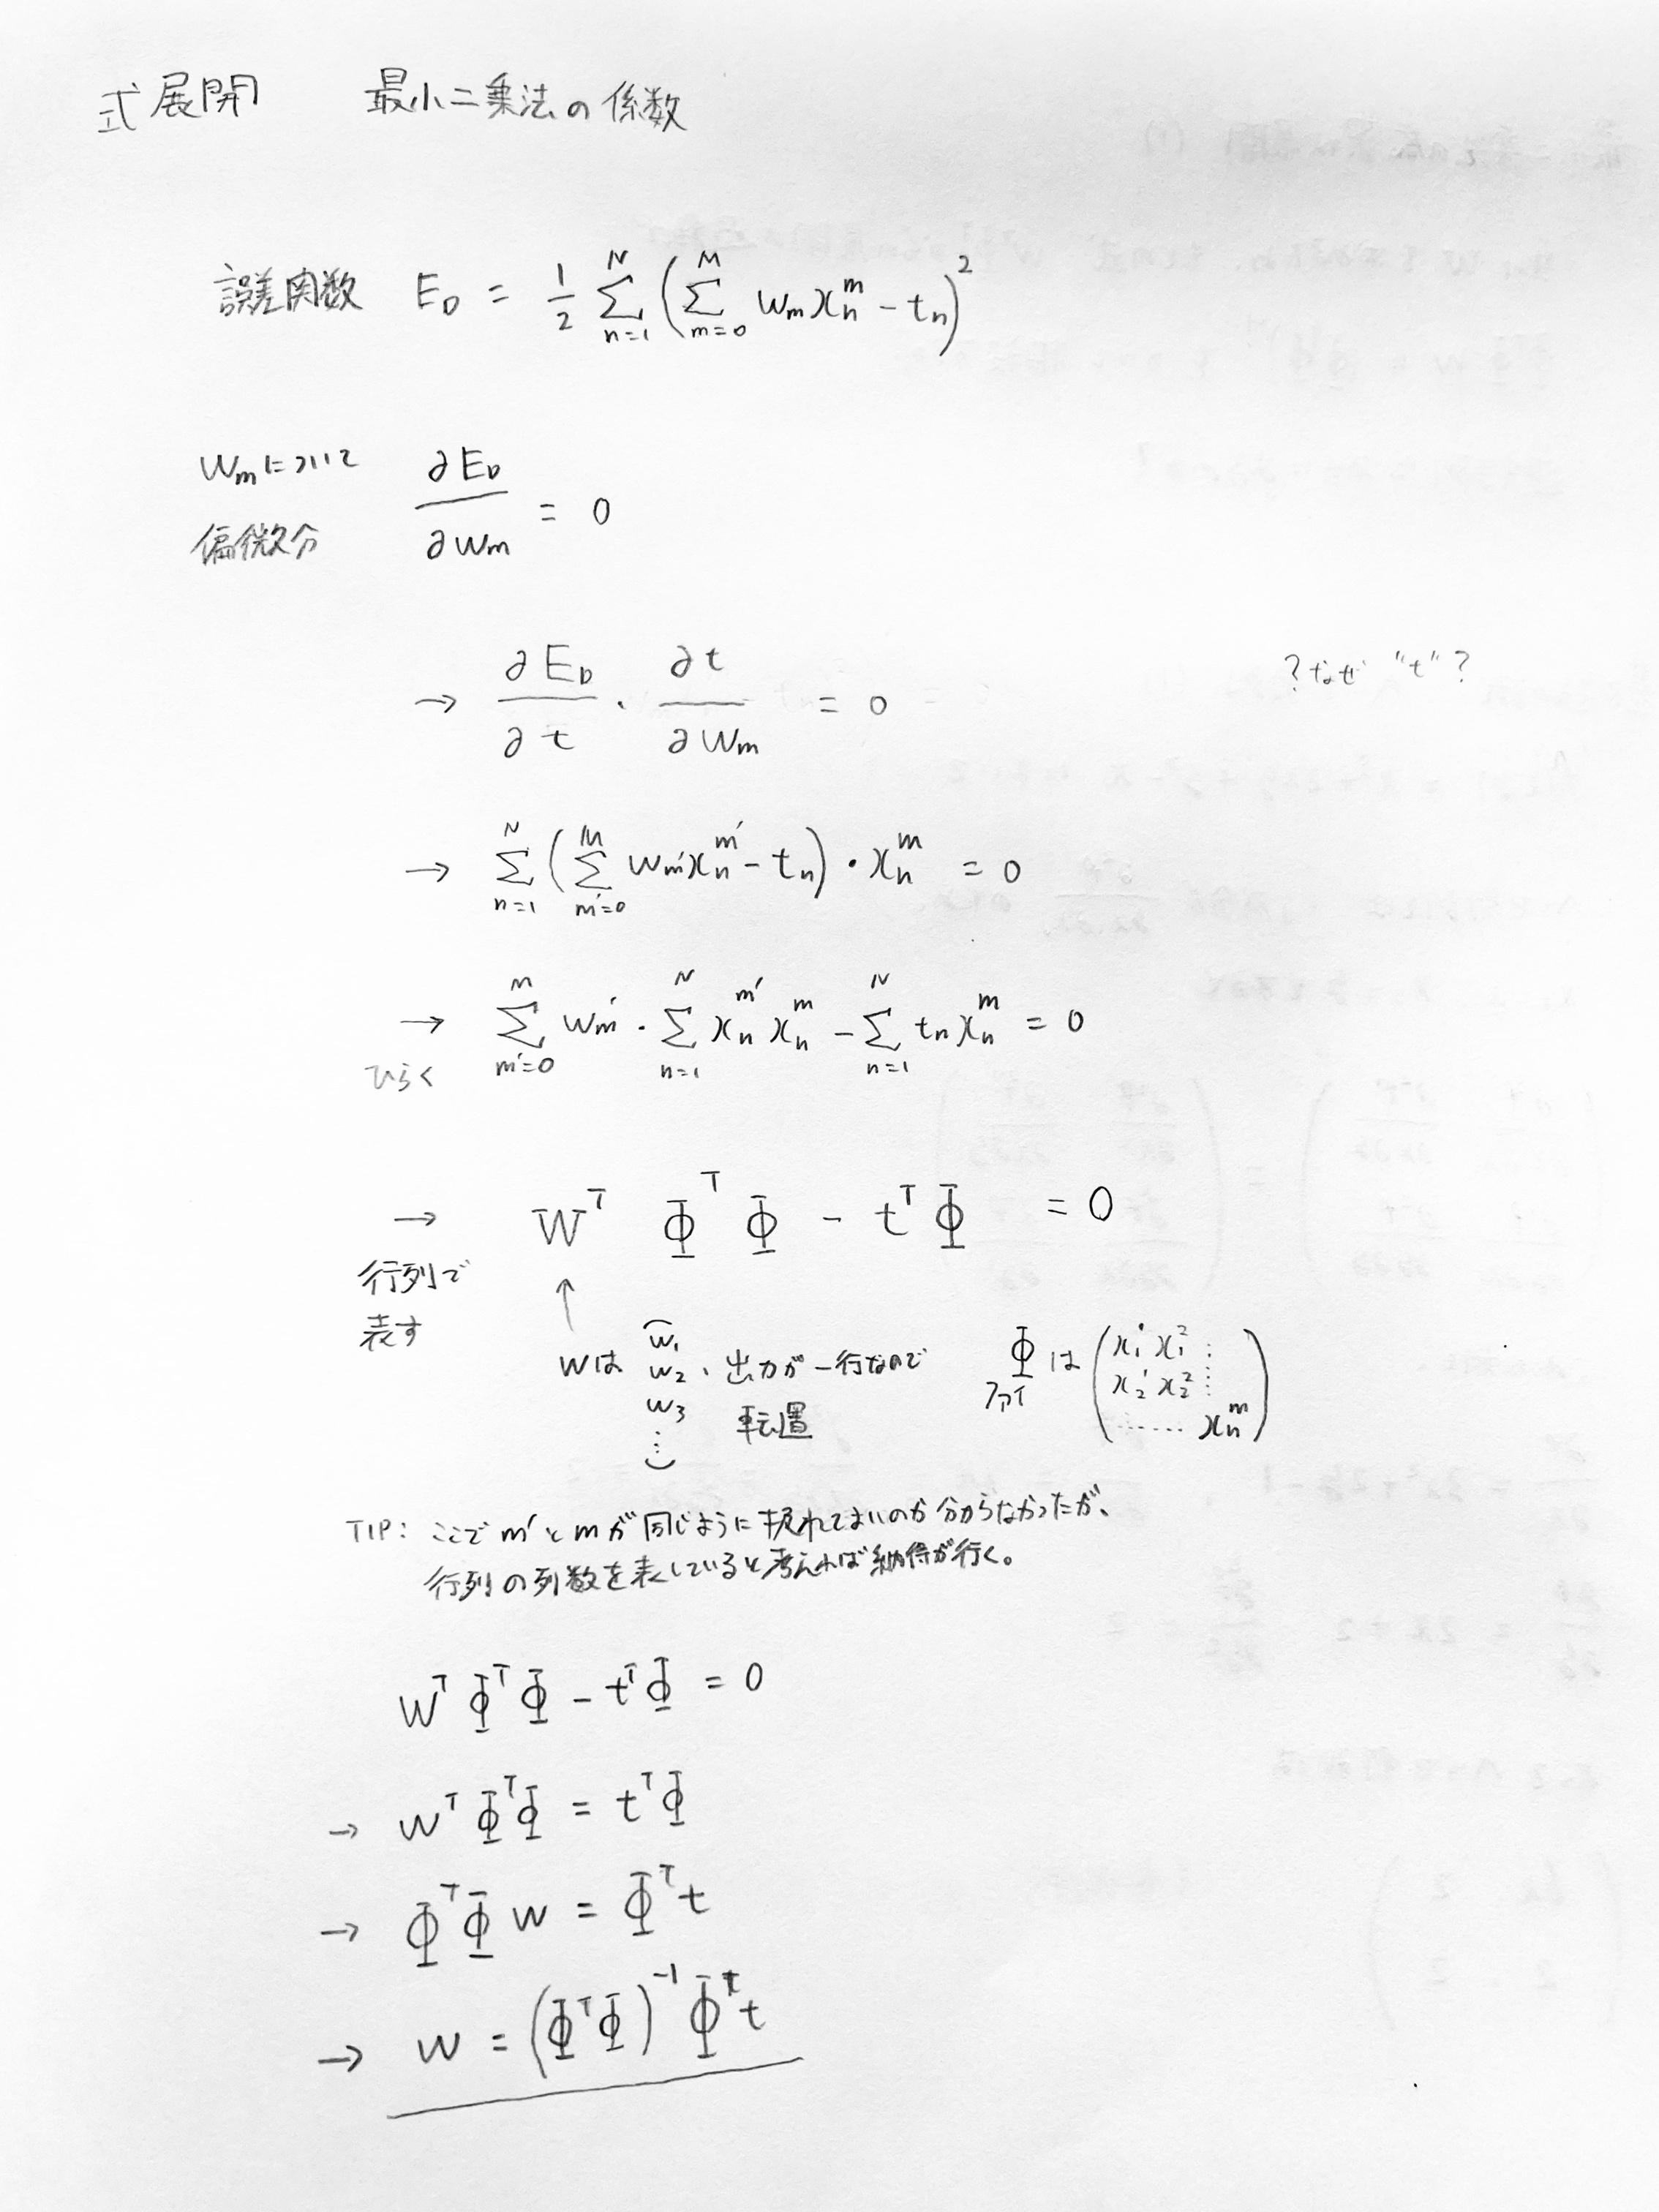 式展開 最小二乗法の係数
誤差関数 E_D = 1/2 Σ_{n=1}^{N} ( Σ_{m=0}^{M} w_m x_n^m − t_n )^2
w_mについて ∂E_D/∂w_m = 0
偏微分
→ ∂E_D/∂t · ∂t/∂w_m = 0 ?なぜ "t"?
→ Σ_{n=1}^{N} ( Σ_{m'=0}^{M} w_m' x_n^{m'} − t_n ) · x_n^m = 0
→ Σ_{m'=0}^{M} w_m' · Σ_{n=1}^{N} x_n^{m'} x_n^m − Σ_{n=1}^{N} t_n x_n^m = 0
ひらく
→ W^T Φ^T Φ − t^T Φ = 0
行列で
表す
↑
wは (w_1 w_2 w_3 ⋮)、出力が一行なので
転置
Φは ( x_1^1 x_1^2 ⋮
ファイ x_2^1 x_2^2 ⋮
...... x_n^m )
TIP: ここでm'とmが同じように扱れてよいのか分からなかったが、
行列の列数を表していると考えれば納得が行く。
W^T Φ^T Φ − t^T Φ = 0
→ W^T Φ^T Φ = t^T Φ
→ Φ^T Φ w = Φ^T t
→ w = (Φ^T Φ)^{-1} Φ^t t